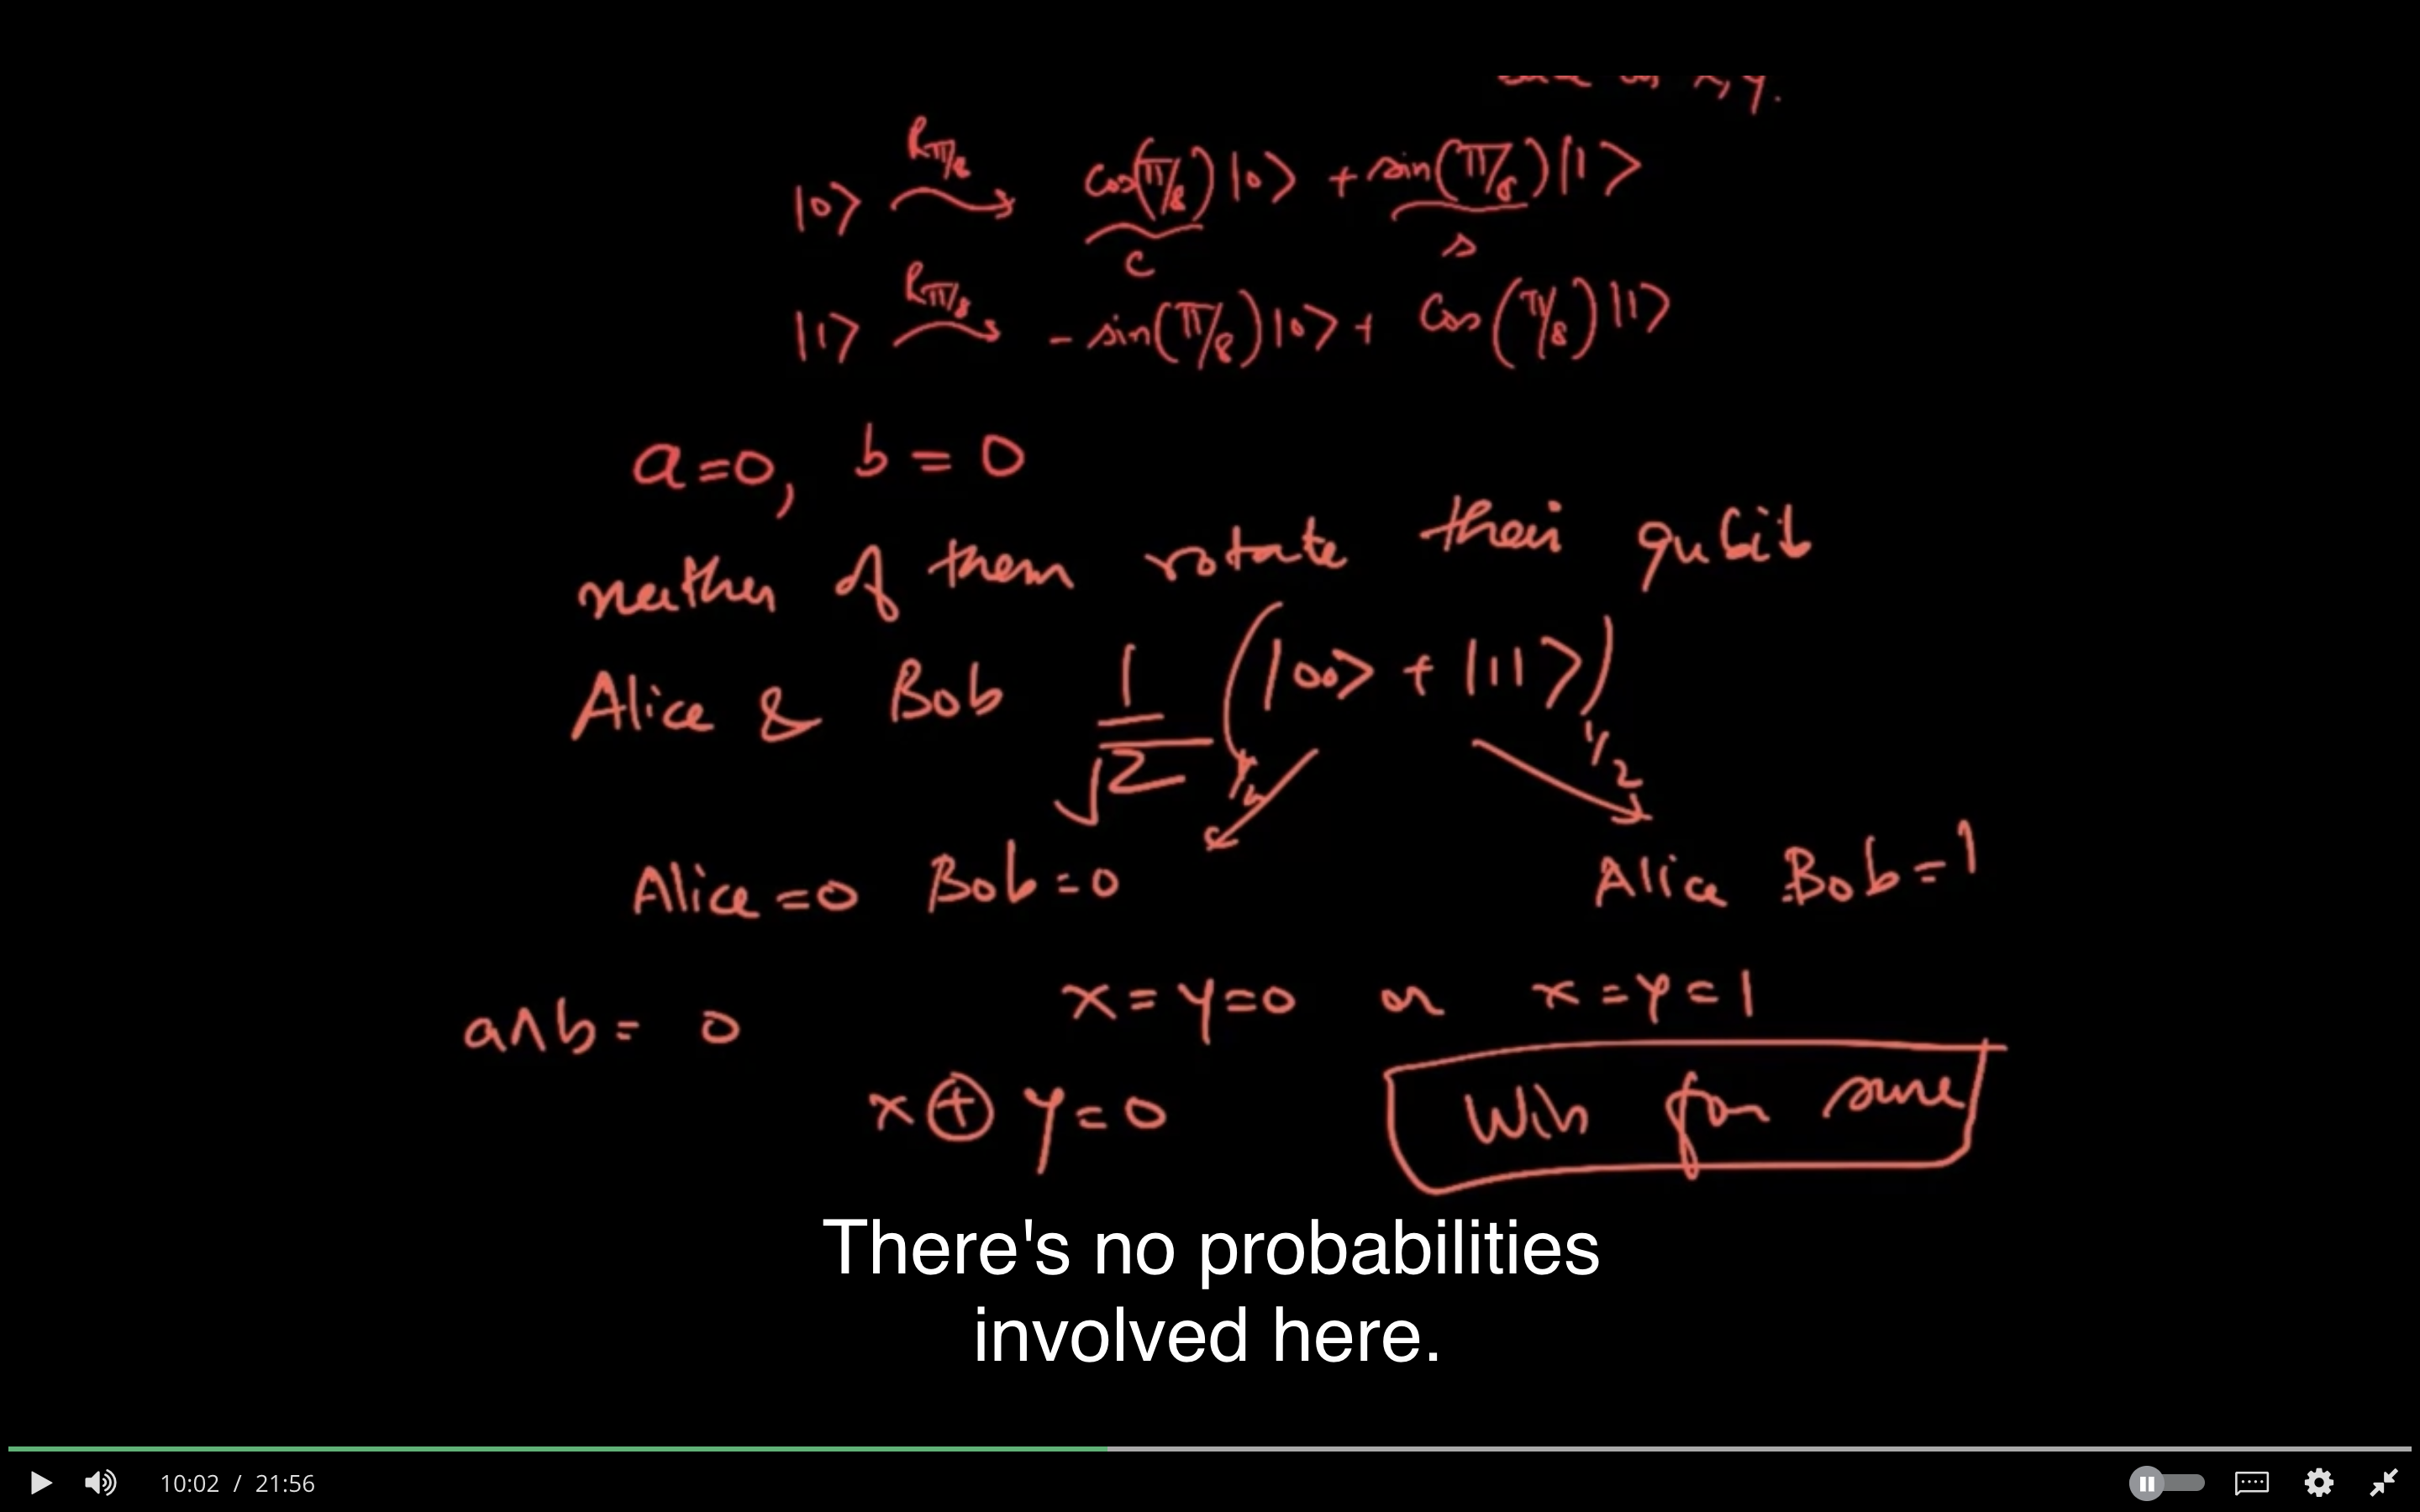 x, y.
|0⟩ R_π/8 cos(π/8)|0⟩ + sin(π/8)|1⟩
c s
|1⟩ R_π/8 - sin(π/8)|0⟩ + cos(π/8)|1⟩
a=0, b=0
neither of them rotate their qubit
Alice & Bob 1/√2 (|00⟩ + |11⟩)
1/2 1/2
Alice=0 Bob=0 Alice Bob=1
a∧b= 0 x=y=0 or x=y=1
x⊕y=0 Win for sure
There's no probabilities
involved here.
10:02 / 21:56